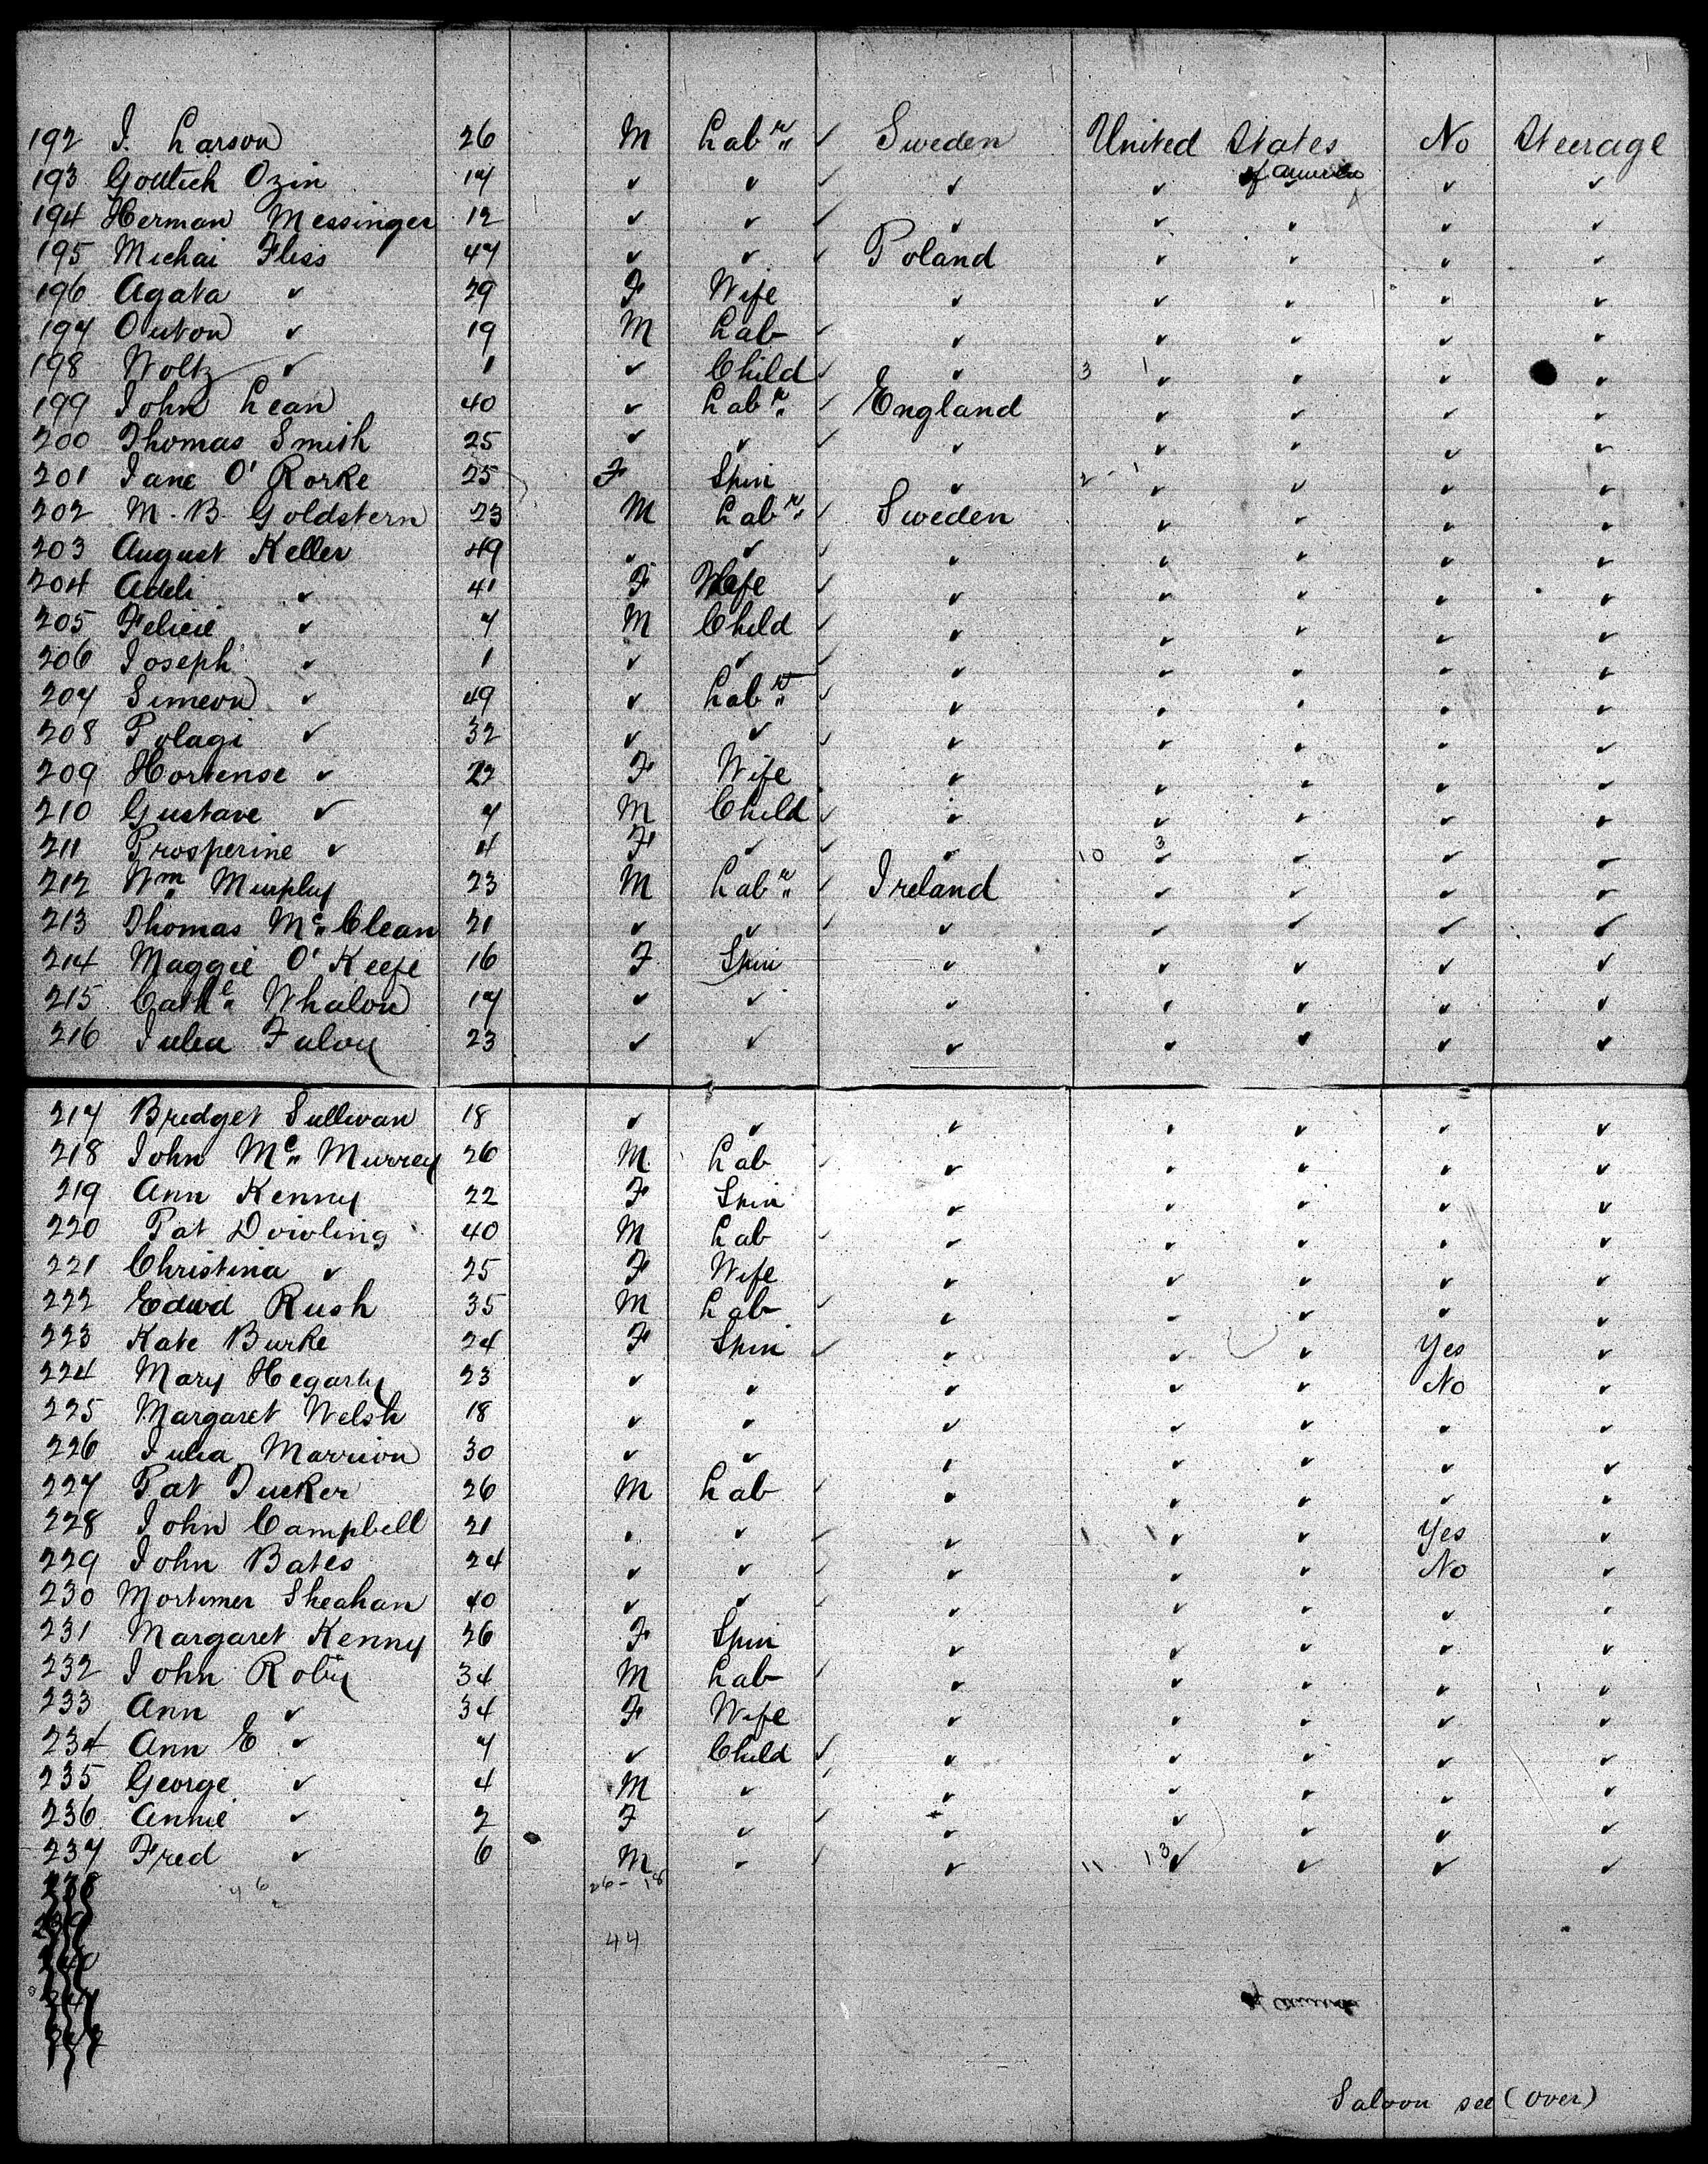 192 J. Larson 26 M Labr ✓ Sweden United States No Steerage
of America
193 Gottlieb Ozin 17 ✓ ✓ ✓ ✓ ✓ ✓ ✓ ✓
194 Herman Messinger 12 ✓ ✓ ✓ ✓ ✓ ✓ ✓ ✓
195 Michai Fliss 47 ✓ ✓ ✓ Poland ✓ ✓ ✓ ✓
196 Agata ✓ 29 F Wife ✓ ✓ ✓ ✓ ✓
197 Outon ✓ 19 M Lab ✓ ✓ ✓ ✓ ✓ ✓
198 Woltz ✓ 1 ✓ Child ✓ ✓ 3 1 ✓ ✓ ✓ ✓
199 John Lean 40 ✓ Labr ✓ England ✓ ✓ ✓ ✓
200 Thomas Smith 25 ✓ ✓ ✓ ✓ ✓ ✓ ✓ ✓
201 Jane O'Rorke 25 F Spin ✓ 2 - 1 ✓ ✓ ✓ ✓
202 M. B. Goldstern 23 M Labr ✓ Sweden ✓ ✓ ✓ ✓
203 August Keller 49 ✓ ✓ ✓ ✓ ✓ ✓ ✓ ✓
204 Adeli ✓ 41 F Wife ✓ ✓ ✓ ✓ ✓ ✓
205 Felicie ✓ 7 M Child ✓ ✓ ✓ ✓ ✓ ✓
206 Joseph ✓ 1 ✓ ✓ ✓ ✓ ✓ ✓ ✓ ✓
207 Simeon ✓ 49 ✓ Labr ✓ ✓ ✓ ✓ ✓ ✓
208 Polagi ✓ 32 ✓ ✓ ✓ ✓ ✓ ✓ ✓ ✓
209 Hortense ✓ 22 F Wife ✓ ✓ ✓ ✓ ✓
210 Gustave ✓ 7 M Child ✓ ✓ ✓ ✓ ✓ ✓
211 Prosperine ✓ 4 F ✓ ✓ ✓ 10 3 ✓ ✓ ✓ ✓
212 Wm Murphy 23 M Labr ✓ Ireland ✓ ✓ ✓ ✓
213 Thomas Mc Clean 21 ✓ ✓ ✓ ✓ ✓ ✓ ✓ ✓
214 Maggie O'Keefe 16 F Spin ✓ ✓ ✓ ✓ ✓
215 Cathe Whalon 17 ✓ ✓ ✓ ✓ ✓ ✓ ✓
216 Julia Faloy 23 ✓ ✓ ✓ ✓ ✓ ✓ ✓
217 Bridget Sullivan 18 ✓ ✓ ✓ ✓ ✓ ✓ ✓
218 John Mc Murrey 26 M Lab ✓ ✓ ✓ ✓ ✓ ✓
219 Ann Kenny 22 F Spin ✓ ✓ ✓ ✓ ✓
220 Pat Dowling 40 M Lab ✓ ✓ ✓ ✓ ✓ ✓
221 Christina ✓ 25 F Wife ✓ ✓ ✓ ✓ ✓
222 Edwd Rush 35 M Lab ✓ ✓ ✓ ✓ ✓ ✓
223 Kate Burke 24 F Spin ✓ ✓ ✓ ✓ Yes ✓
224 Mary Hegarty 23 ✓ ✓ ✓ ✓ ✓ No ✓
225 Margaret Welsh 18 ✓ ✓ ✓ ✓ ✓ ✓ ✓
226 Julia Marrion 30 ✓ ✓ ✓ ✓ ✓ ✓ ✓
227 Pat Tucker 26 M Lab ✓ ✓ ✓ ✓ ✓ ✓
228 John Campbell 21 ✓ ✓ ✓ ✓ 1 1 ✓ ✓ Yes ✓
229 John Bates 24 ✓ ✓ ✓ ✓ ✓ ✓ No ✓
230 Mortimer Sheahan 40 ✓ ✓ ✓ ✓ ✓ ✓ ✓ ✓
231 Margaret Kenny 26 F Spin ✓ ✓ ✓ ✓ ✓
232 John Roby 34 M Lab ✓ ✓ ✓ ✓ ✓ ✓
233 Ann ✓ 34 F Wife ✓ ✓ ✓ ✓ ✓
234 Ann E ✓ 7 ✓ Child ✓ ✓ ✓ ✓ ✓ ✓
235 George ✓ 4 M ✓ ✓ ✓ ✓ ✓ ✓ ✓
236 Annie ✓ 2 F ✓ ✓ ✓ ✓ ✓ ✓ ✓
237 Fred ✓ 6 M ✓ ✓ ✓ 11 13 ✓ ✓ ✓ ✓
238 46 26 - 18
239
44
240
241 of America
242
Saloon see (over)